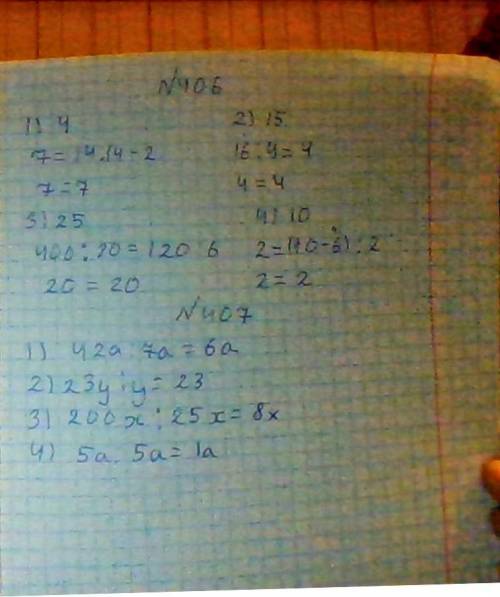 №406
1) 4 2) 15
7=14:14-2 16:4=4
7=7 4=4
3) 25 4) 10
400:20=120:6 2=(10-6):2
20=20 2=2
№407
1) 42a:7a=6a
2) 23y:y=23
3) 200x:25x=8x
4) 5a:5a=1a